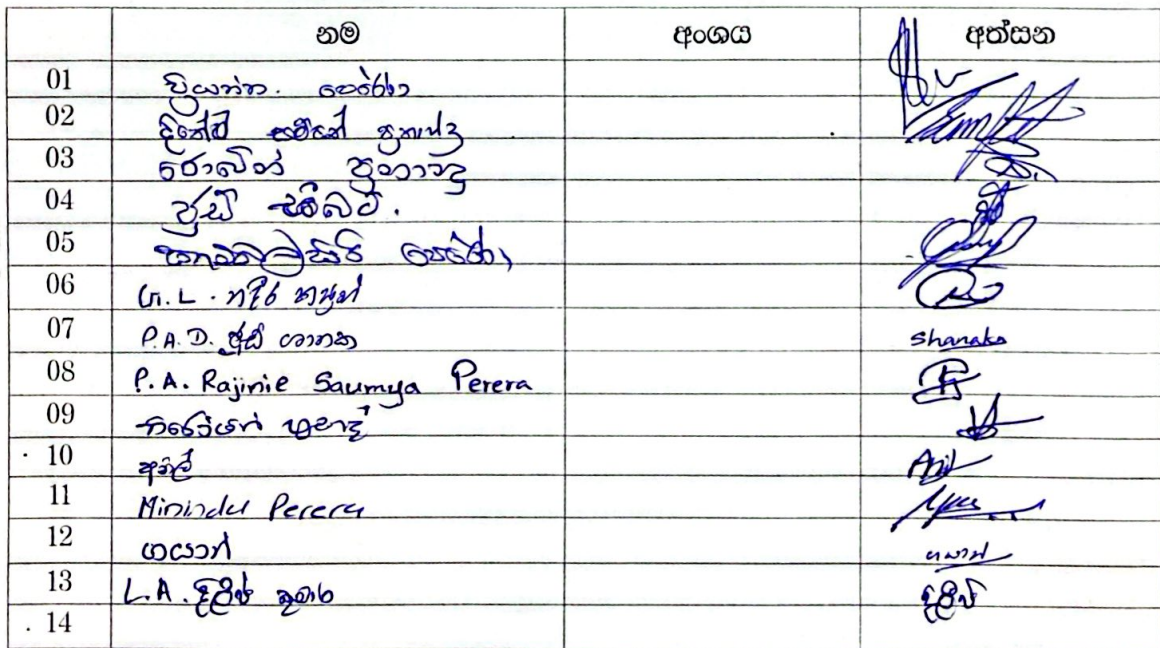 නම අංශය අත්සන
01 ප්‍රියන්ත. පෙරේරා
02 දිනේෂ් සම්පත් ප්‍රනාන්දු
03 රොබින් ප්‍රනාන්දු
04 ජූඩ් සම්පත්.
05 පෙරේරා
06 G. L.
07 P.A.D. ජූඩ් ශානක Shanaka
08 P.A. Rajinie Saumya Perera
09
10 අනිල් Anil
11 Minindu Perera
12 ගයාන් ගයාන්
13 L.A. දිලිප් කුමාර දිලිප්
14